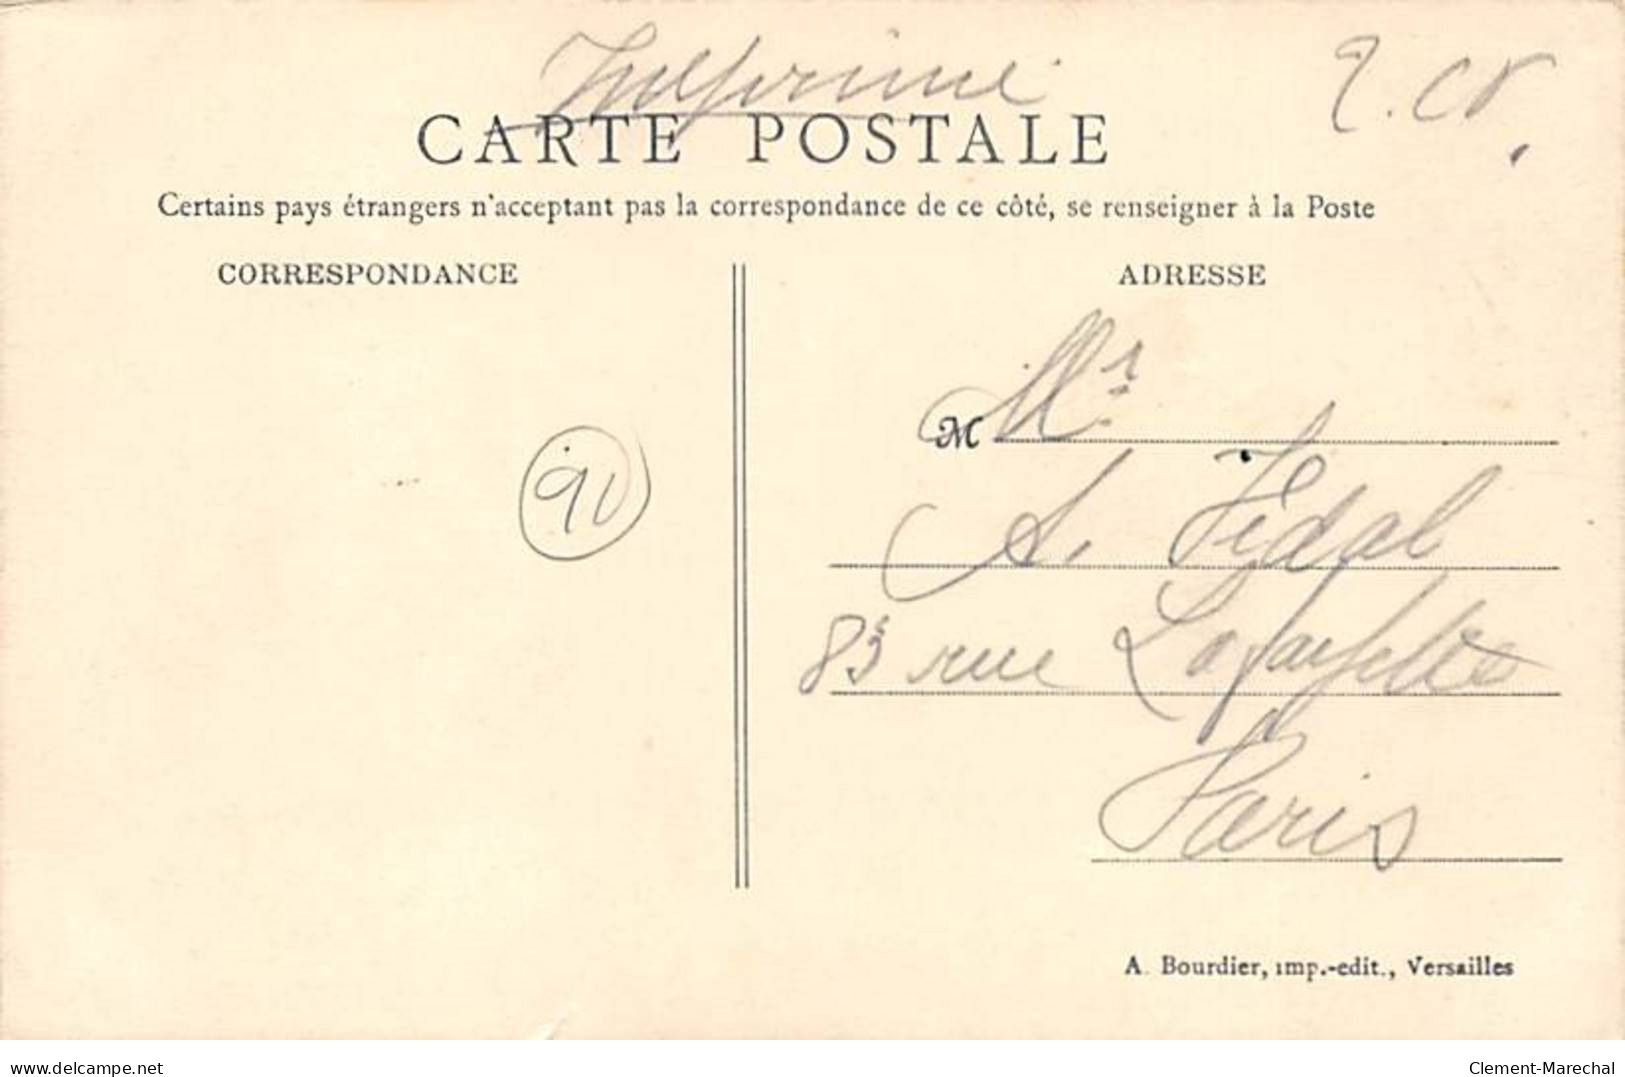 Imprimé
CARTE POSTALE
Certains pays étrangers n'acceptant pas la correspondance de ce côté, se renseigner à la Poste
CORRESPONDANCE
ADRESSE
M Mr
A. Vidal
83 rue Lafayette
Paris
A. Bourdier, imp.-edit., Versailles
delcampe.net
Clement-Marechal